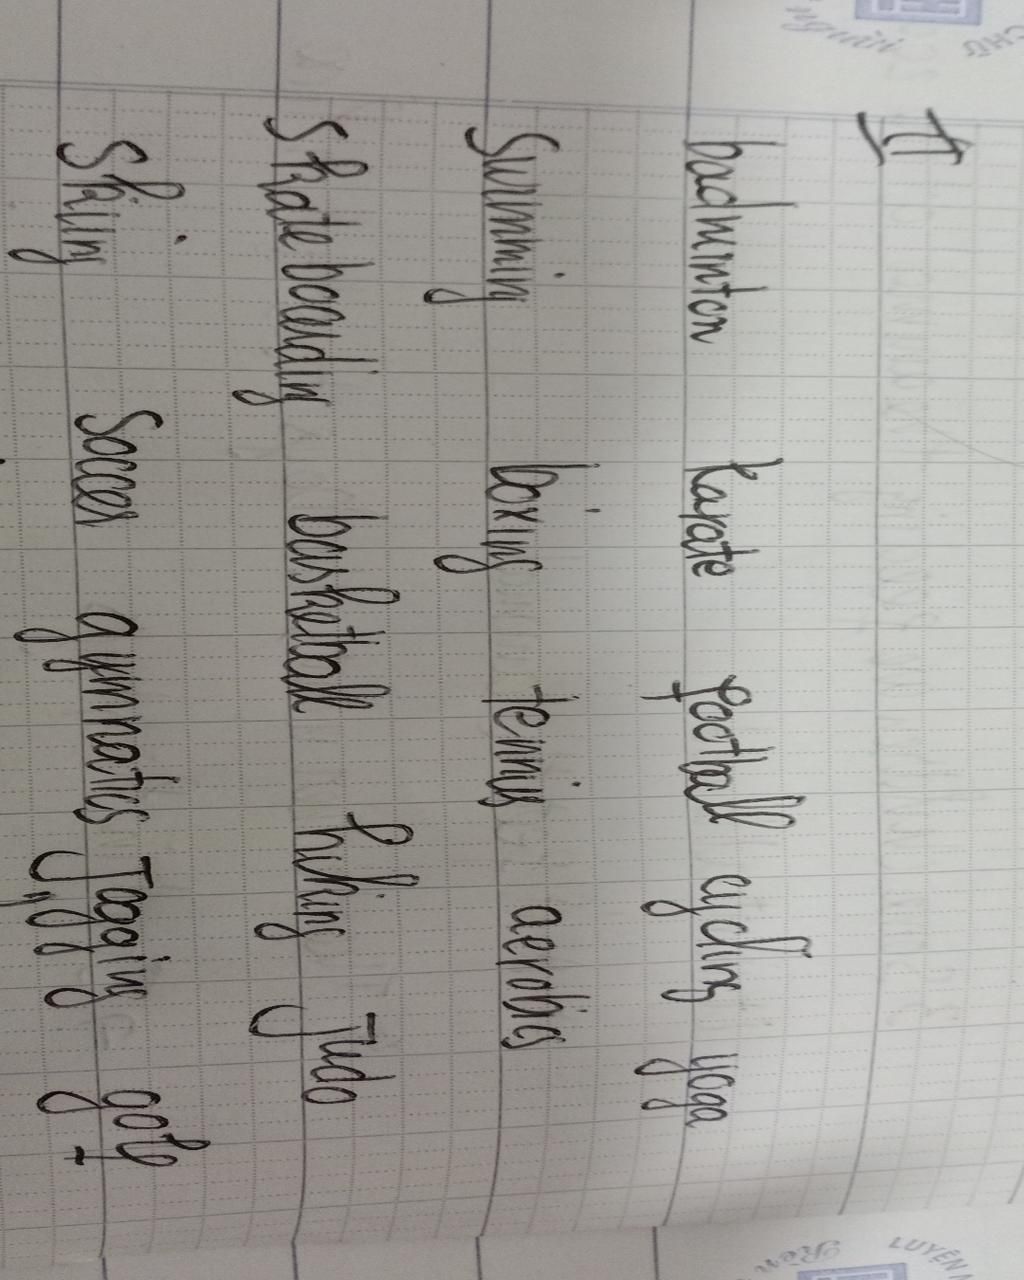 II
badminton karate football cycling yoga
Swimming boxing tennis aerobics
Skateboarding basketball hiking Judo
Skiing Soccer gymnatics Jogging golf